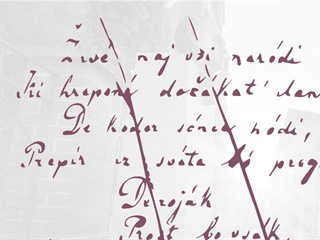 Živé naj vsi naródi
Ki hrepené dočakat' dan
De koder sónce hódi,
Prepír iz svéta bó preg
De roják
Prost bo vsak,